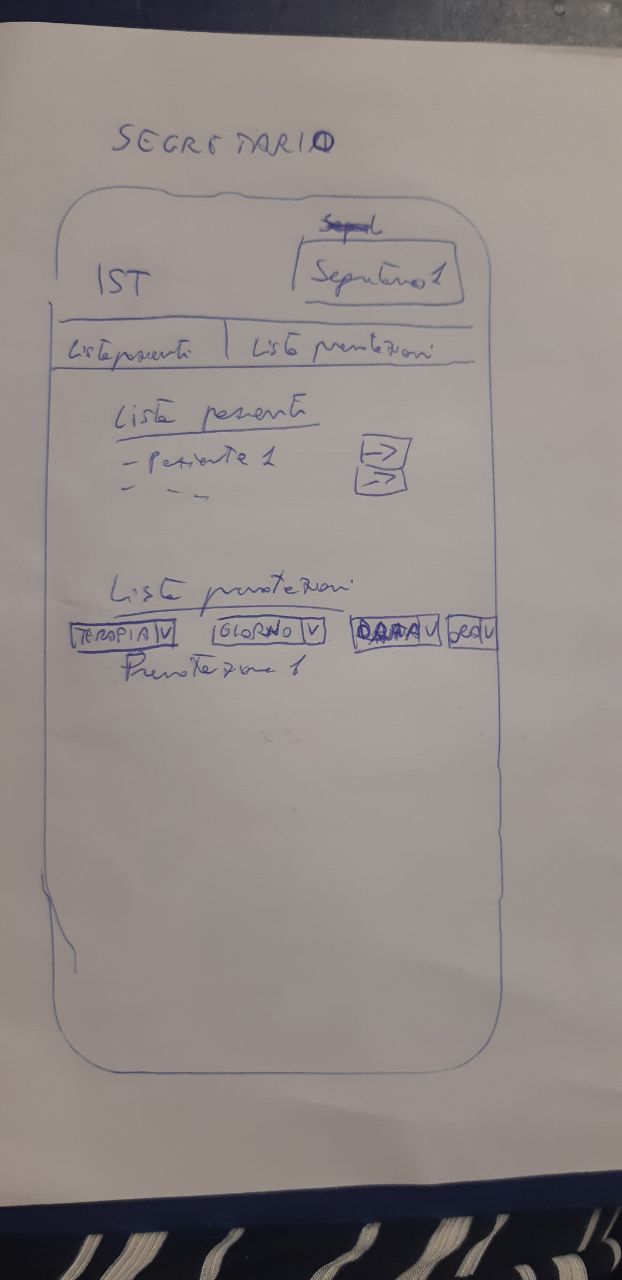 SEGRETARIO
IST
Segretario 1
Lista pazienti
Lista prenotazioni
Lista pazienti
- Paziente 1
- - -
Lista prenotazioni
TERAPIA V GIORNO V V ORA V
Prenotazione 1